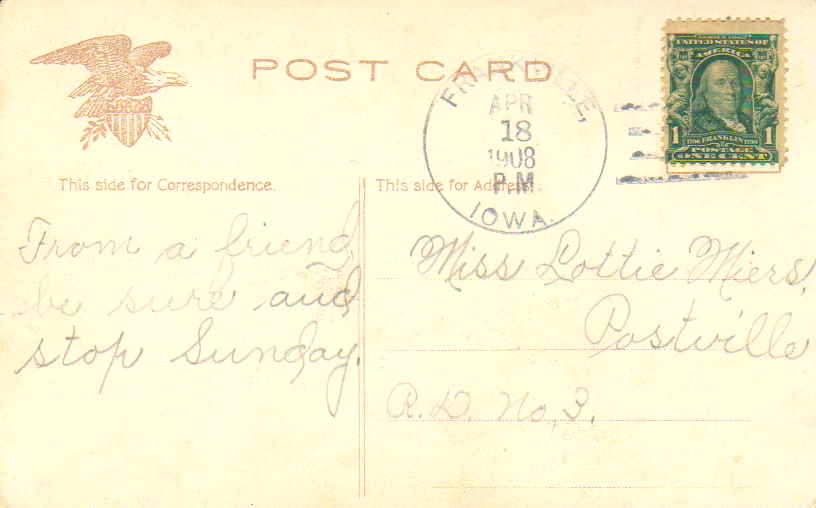 POST CARD
FRANKVILLE,
APR
18
1908
P.M
IOWA.
UNITED STATES OF
AMERICA
1 FRANKLIN 1
POSTAGE
ONE CENT
This side for Correspondence.
This side for Address.
From a friend
be sure and
stop Sunday.
Miss Lottie Miers,
Postville
R.D. No, 3.